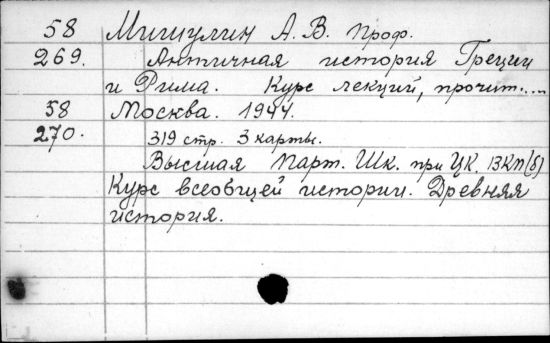 58 Мишулин А. В. проф.
269. Античная история Греции
и Рима. Курс лекций, прочит....
58 Москва. 1944.
270. 319 стр. 3 карты.
Высшая Парт. Шк. при ЦК. ВКП(б)
Курс всеобщей истории. Древняя
история.